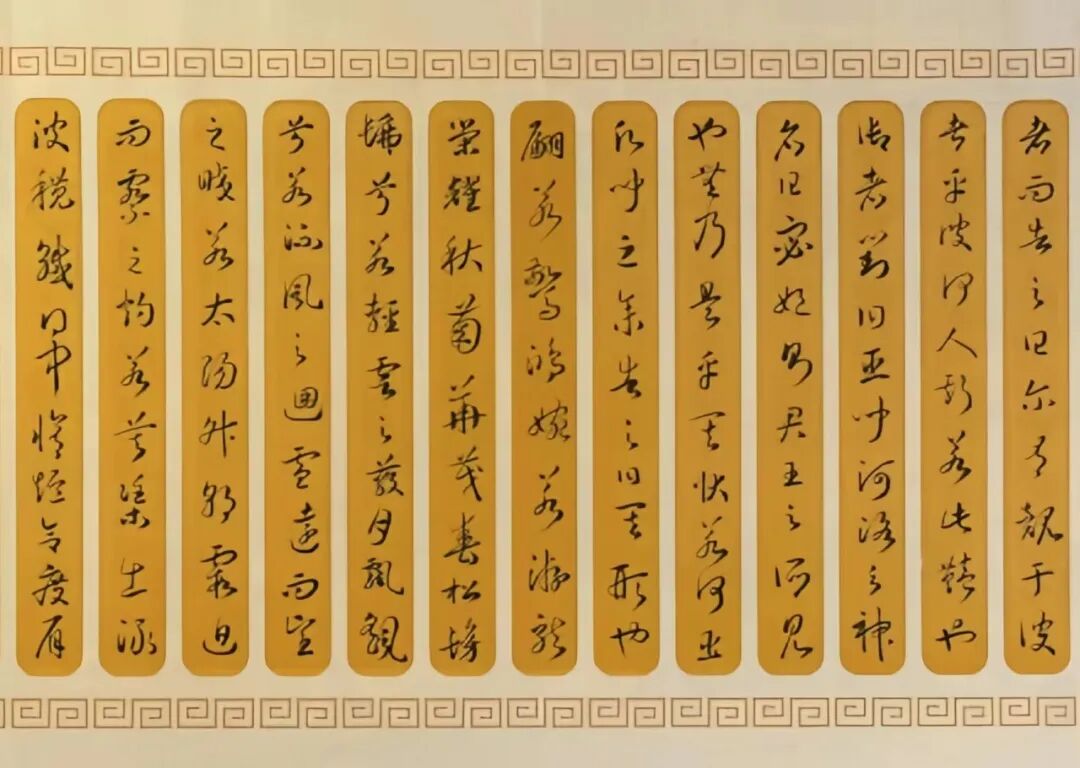 者而告之曰尔有覿于彼
者乎彼何人斯若此豔也
御者對曰臣聞河洛之神
名曰宓妃則君王之所見
也無乃是乎其狀若何臣
願聞之余告之曰其形也
翩若驚鴻婉若游龍
榮耀秋菊華茂春松髣
髴兮若輕雲之蔽月飄颻
兮若流風之迴雪遠而望
之皎若太陽升朝霞迫
而察之灼若芙蕖出淥
波穠纖得中脩短合度肩